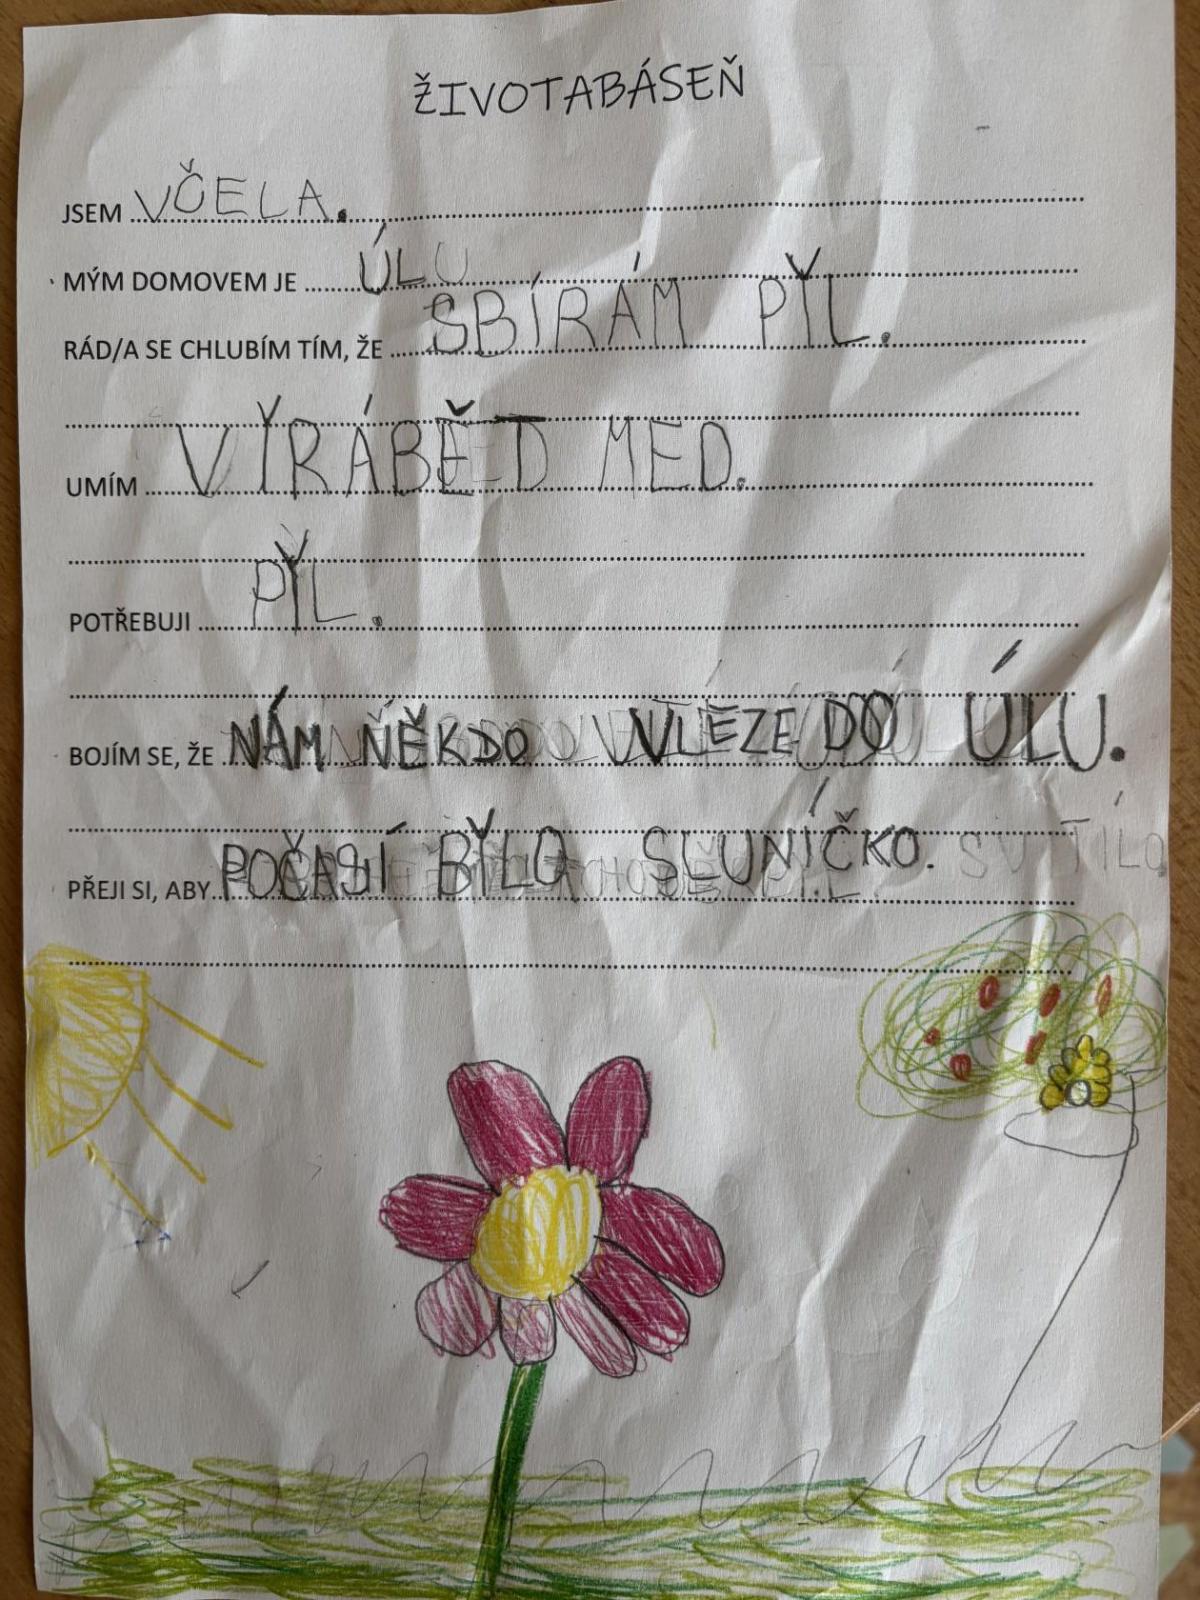 ŽIVOTABÁSEŇ
JSEM VČELA.
MÝM DOMOVEM JE ÚLU
RÁD/A SE CHLUBÍM TÍM, ŽE SBÍRÁM PY̌L.
UMÍM VY̌RÁBĚT MED.
POTŘEBUJI PY̌L.
BOJÍM SE, ŽE NÁM ŇĚKDO VLEZE DO ÚLU.
PŘEJI SI, ABY POČASÍ BY̌LO SLUNÍČKO.